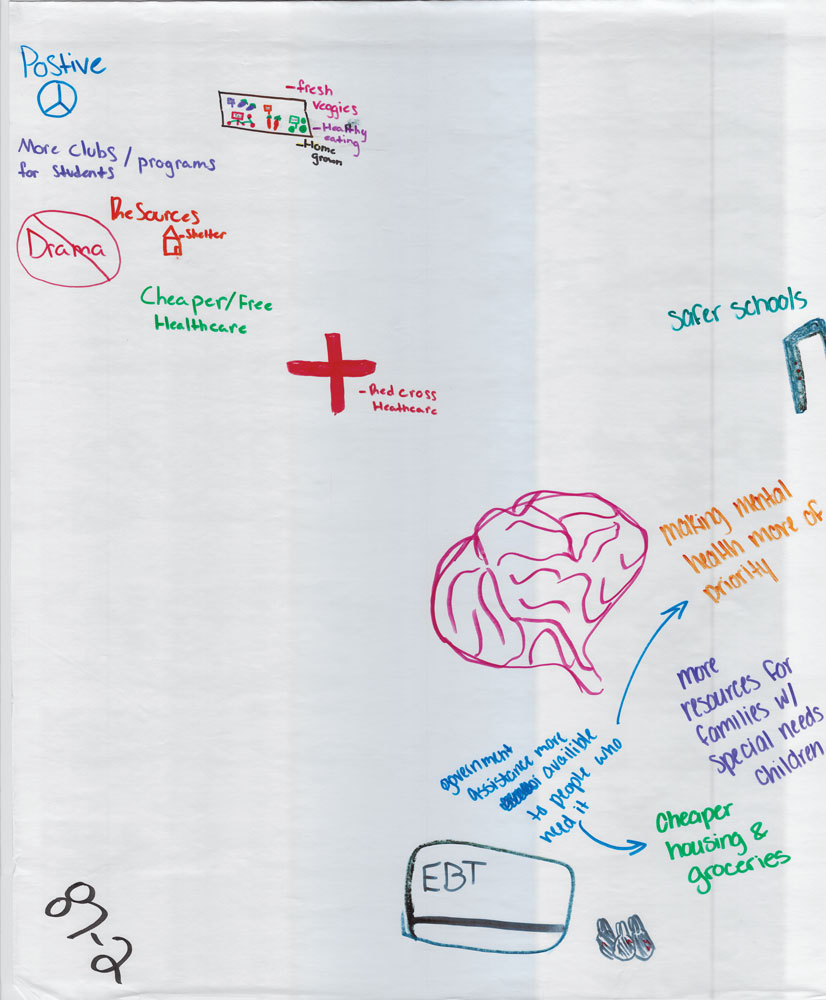 Postive
-fresh
veggies
-Healthy
eating
-Home
grown
More clubs / programs
for Students
ReSources
-Shelter
Drama
Cheaper/Free
Healthcare
-Red cross
Heathcare
safer schools
making mental
health more of
priority
more
resources for
families w/
special needs
children
government
assistance more
availible
to people who
need it
cheaper
housing &
groceries
EBT